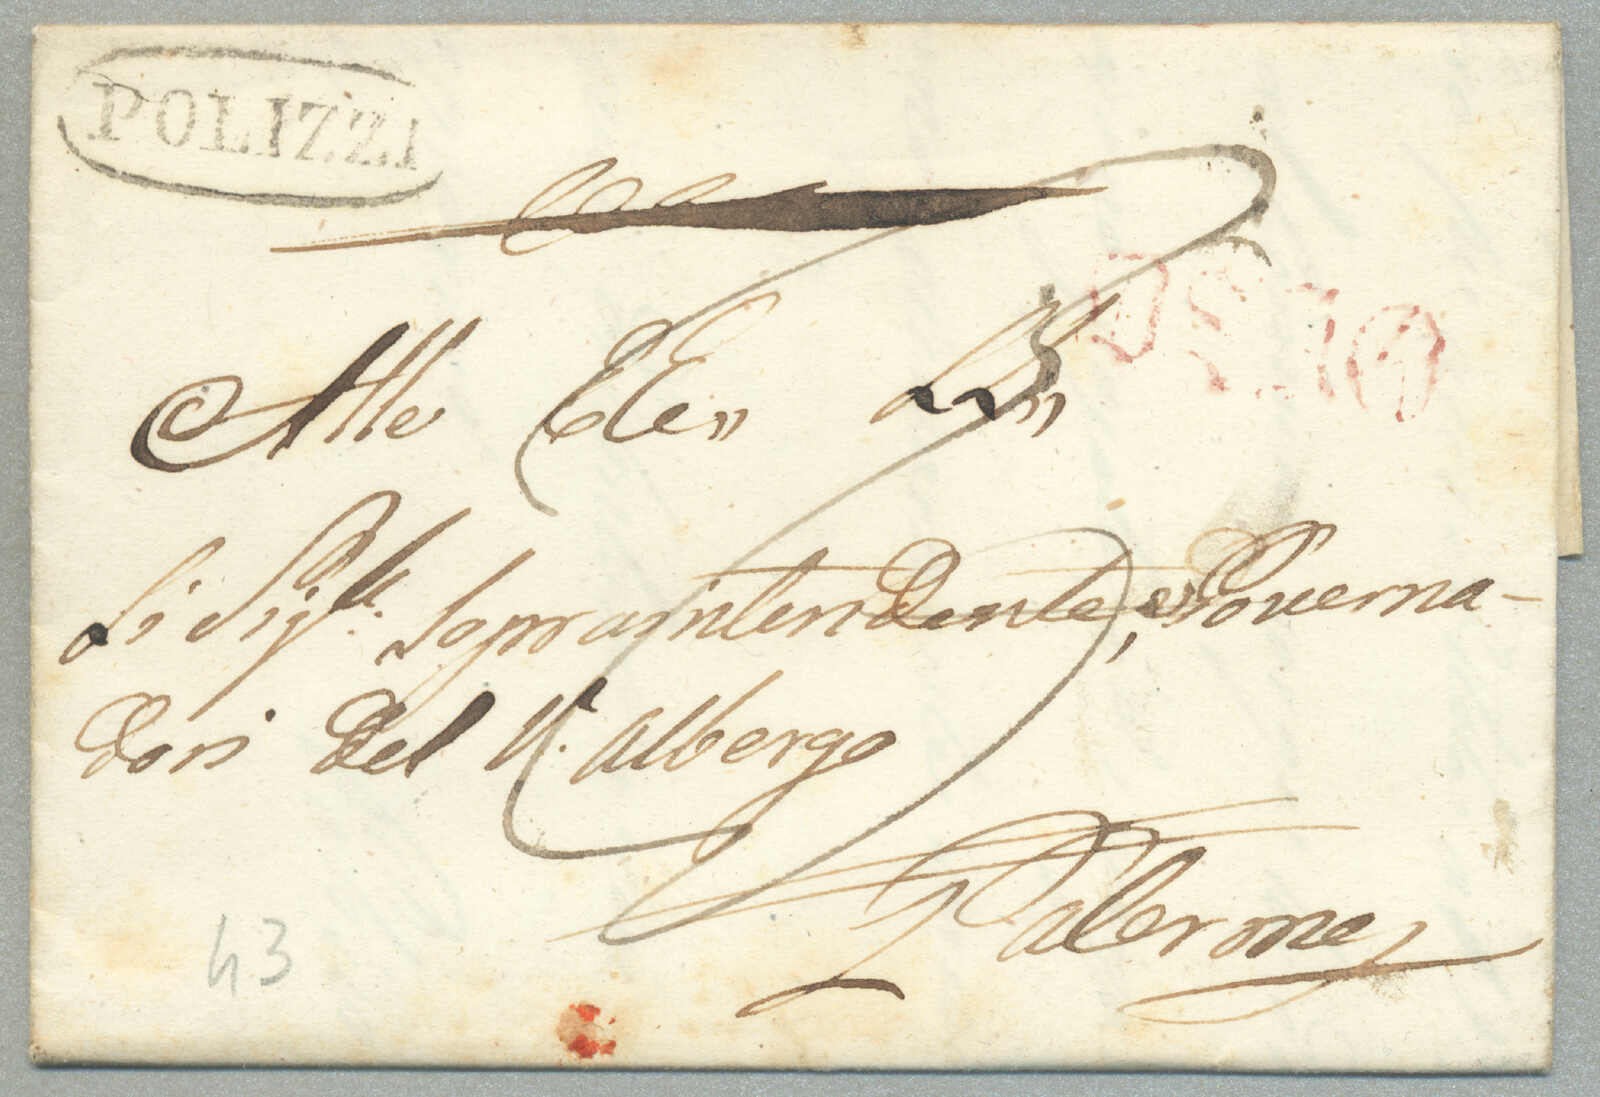 POLIZZI
Alle EE. LL.
Li Sig.ri Sopraintendente, e Governa-
dori del R. Albergo
Palermo
43